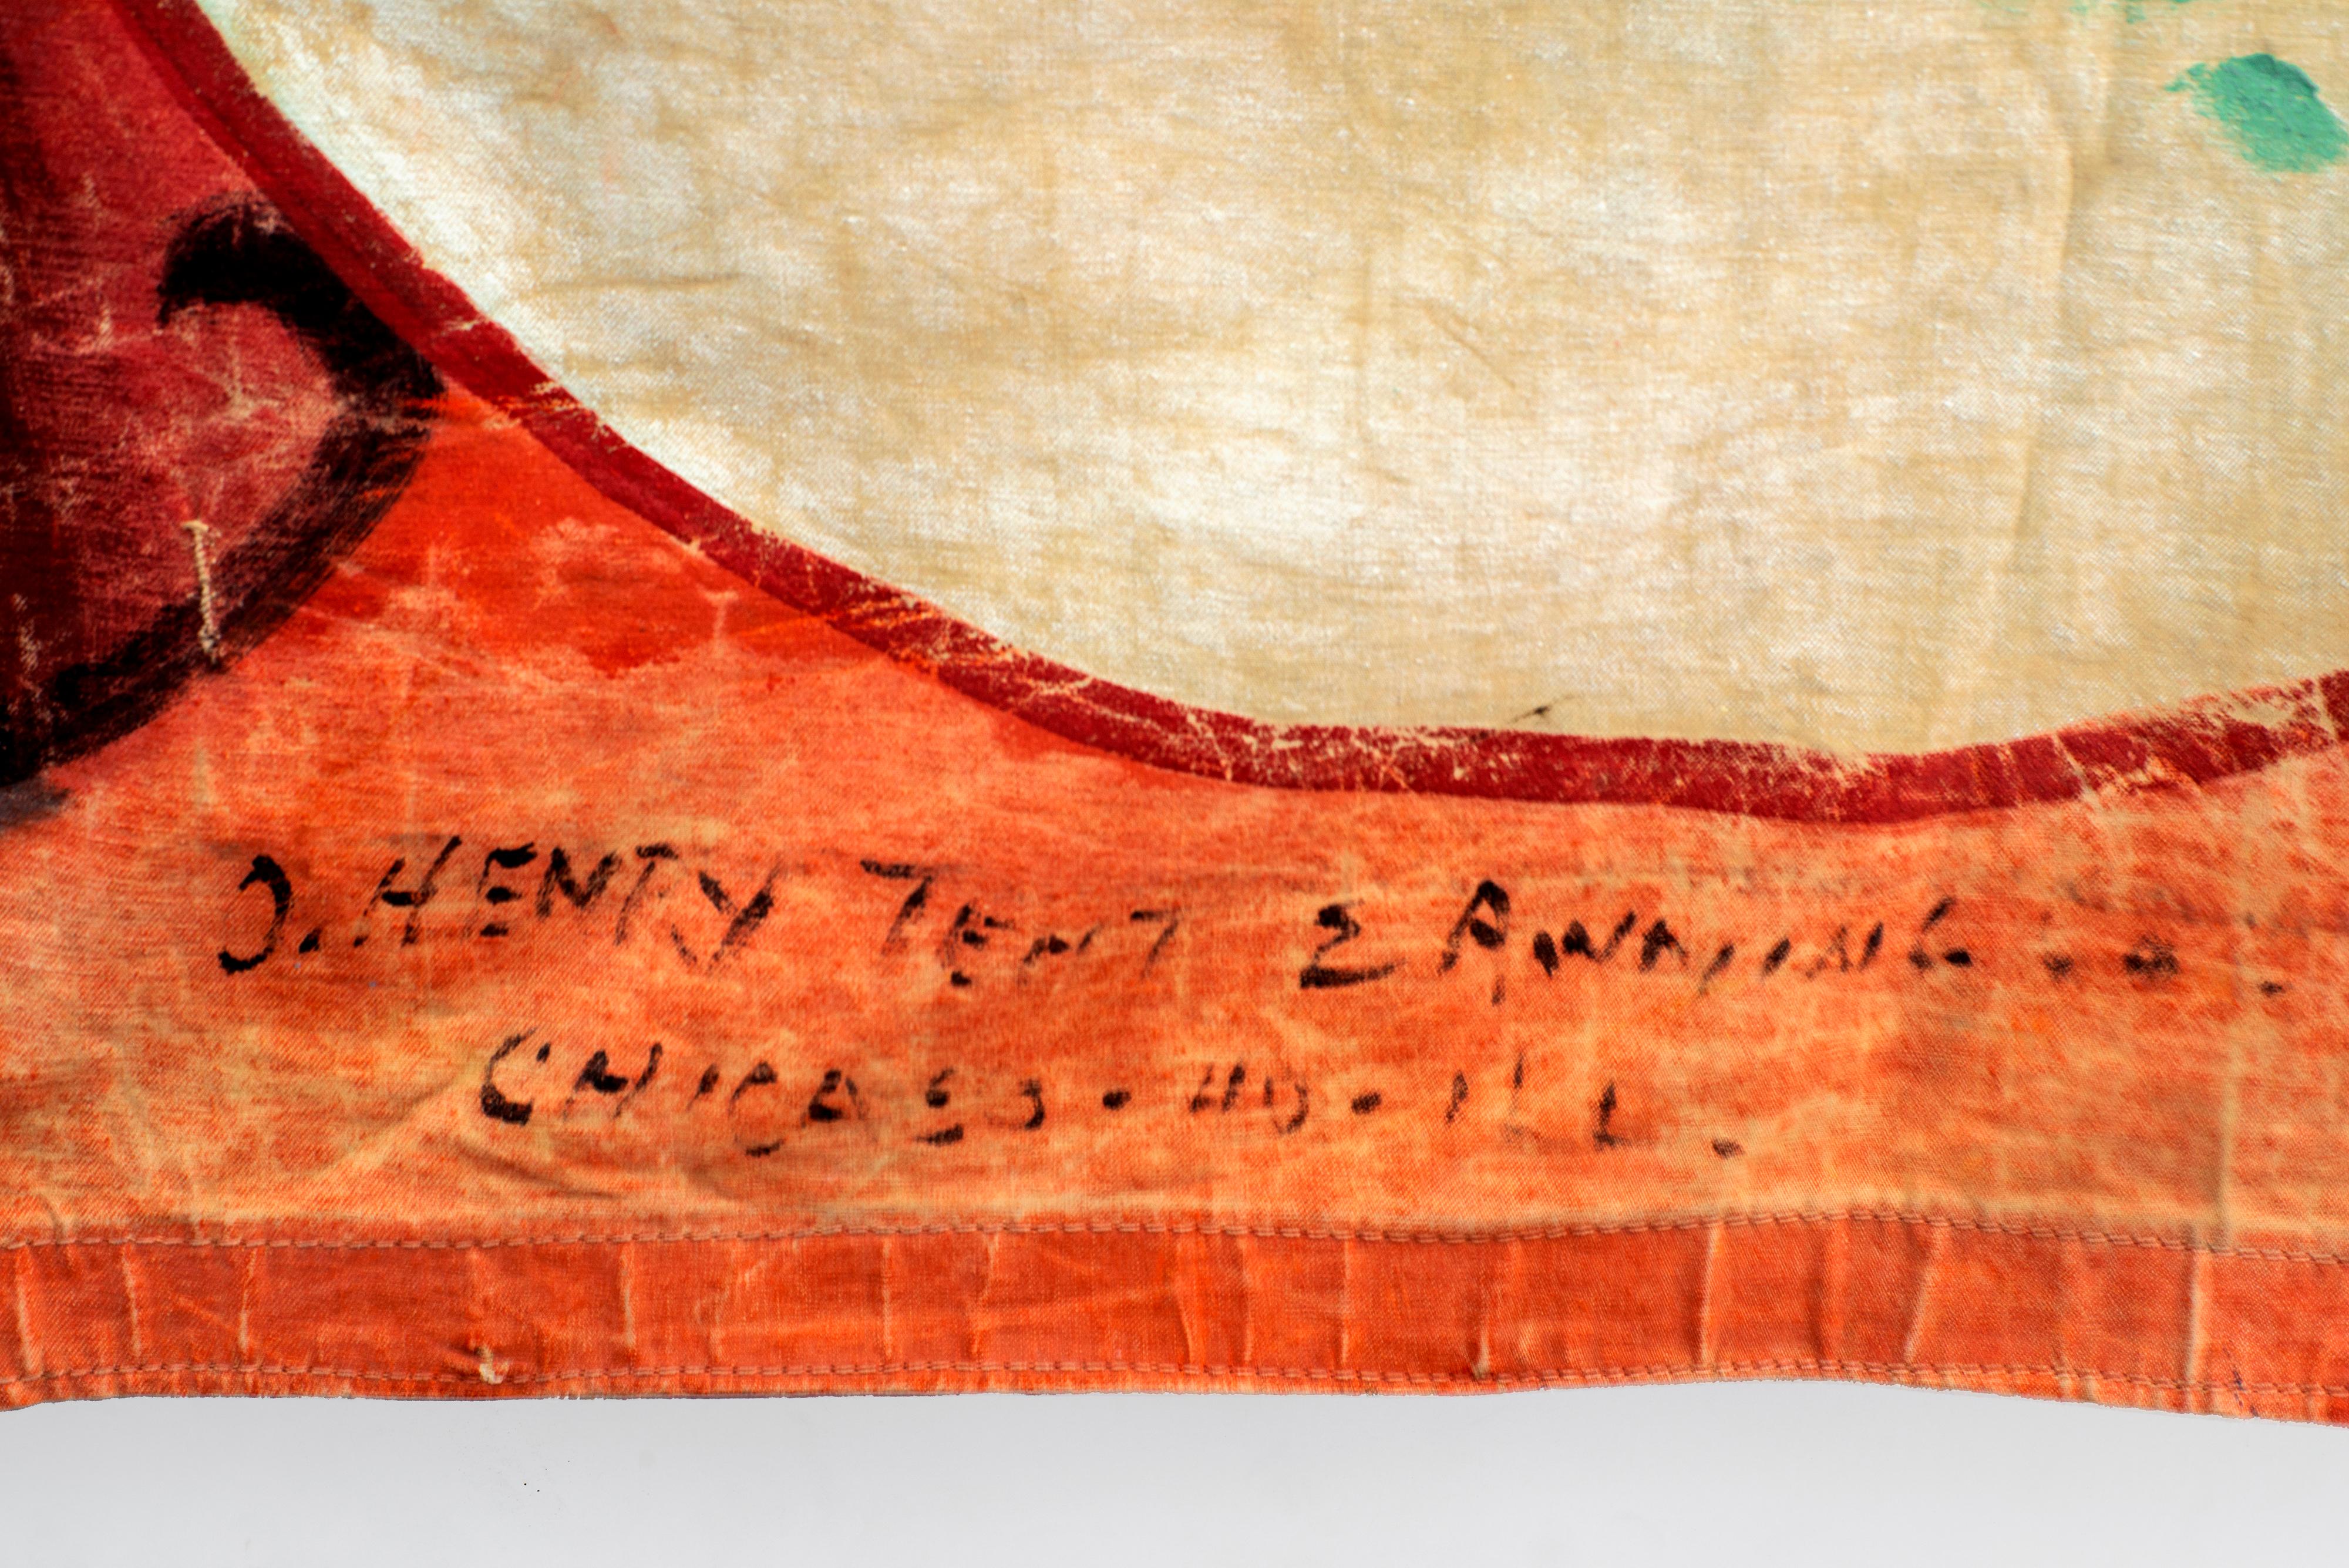 O. HENRY TENT & AWNING CO.
CHICAGO · 40 · ILL.